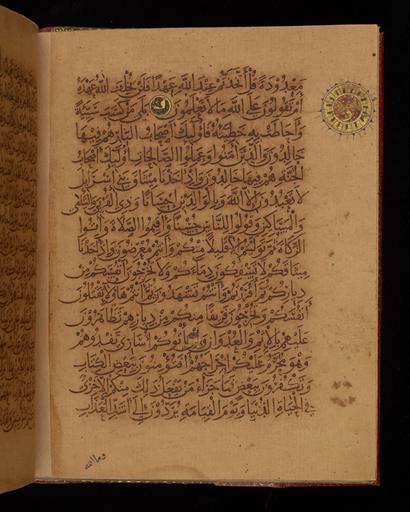 معدودة قل أتخذتم عند الله عهدا فلن يخلف الله عهده
أم تقولون على الله ما لا تعلمون بلى من كسب سيئة
وأحاطت به خطيئته فأولئك أصحاب النار هم فيها
خالدون والذين آمنوا وعملوا الصالحات أولئك أصحاب
الجنة هم فيها خالدون وإذ أخذنا ميثاق بني إسرائيل
لا تعبدون إلا الله وبالوالدين إحسانا وذي القربى واليتامى
والمساكين وقولوا للناس حسنا وأقيموا الصلاة وآتوا
الزكاة ثم توليتم إلا قليلا منكم وأنتم معرضون وإذ أخذنا
ميثاقكم لا تسفكون دماءكم ولا تخرجون أنفسكم من
دياركم ثم أقررتم وأنتم تشهدون ثم أنتم هؤلاء تقتلون
أنفسكم وتخرجون فريقا منكم من ديارهم تظاهرون
عليهم بالإثم والعدوان وإن يأتوكم أسارى تفدوهم
وهو محرم عليكم إخراجهم أفتؤمنون ببعض الكتاب
وتكفرون ببعض فما جزاء من يفعل ذلك منكم إلا خزي
في الحياة الدنيا ويوم القيامة يردون إلى أشد العذاب
وما الله